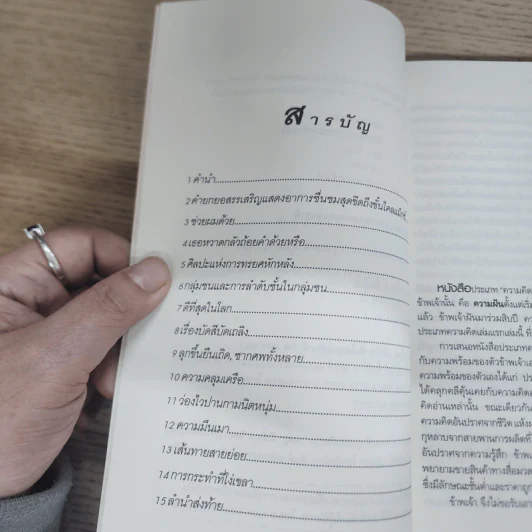 สารบัญ
1 คำนำ
2 คำยกยอสรรเสริญแสดงอาการชื่นชมสุดขีดถึงขั้นไคลแม็กซ์
3 ช่วยผมด้วย
4 เธอหวาดกลัวถ้อยคำด้วยหรือ
5 ศิลปะแห่งการทรยศหักหลัง
6 กลุ่มชนและการลำดับชั้นในกลุ่มชน
7 ดีที่สุดในโลก
8 เรื่องบัดสีบัดเถลิง
9 ลุกขึ้นยืนเถิด, ซากศพทั้งหลาย
10 ความคลุมเครือ
11 ว่องไวปานกามนิตหนุ่ม
12 ความมึนเมา
13 เส้นทางสายย่อย
14 การกระทำที่โง่เขลา
15 ลำนำส่งท้าย
หนังสือประเภท "ความคิด
ข้าพเจ้านั้น คือ ความฝันตั้งแต่
แล้ว ข้าพเจ้าฝันมาร่วมสิบปี
ประเภทความคิดเล่มแรกเล่มนี้
การเสนอหนังสือประเภท
กับความพร้อมของตัวข้าพเจ้า
ความพร้อมของตัวเองได้แก่
ได้คลุกคลีคุ้นเคยกับความคิด
คิดอ่านเหล่านั้น ขณะเดียวกัน
ความคิดอันปราศจากชีวิต
กุหลาบจากสายพานการผลิตที่
อันปราศจากความรู้สึก
พยายามขายสินค้าทางสื่อ
ซึ่งมีลักษณะชั้นต่ำและราคาถูก
ข้าพเจ้า จึงไม่ขอรับ